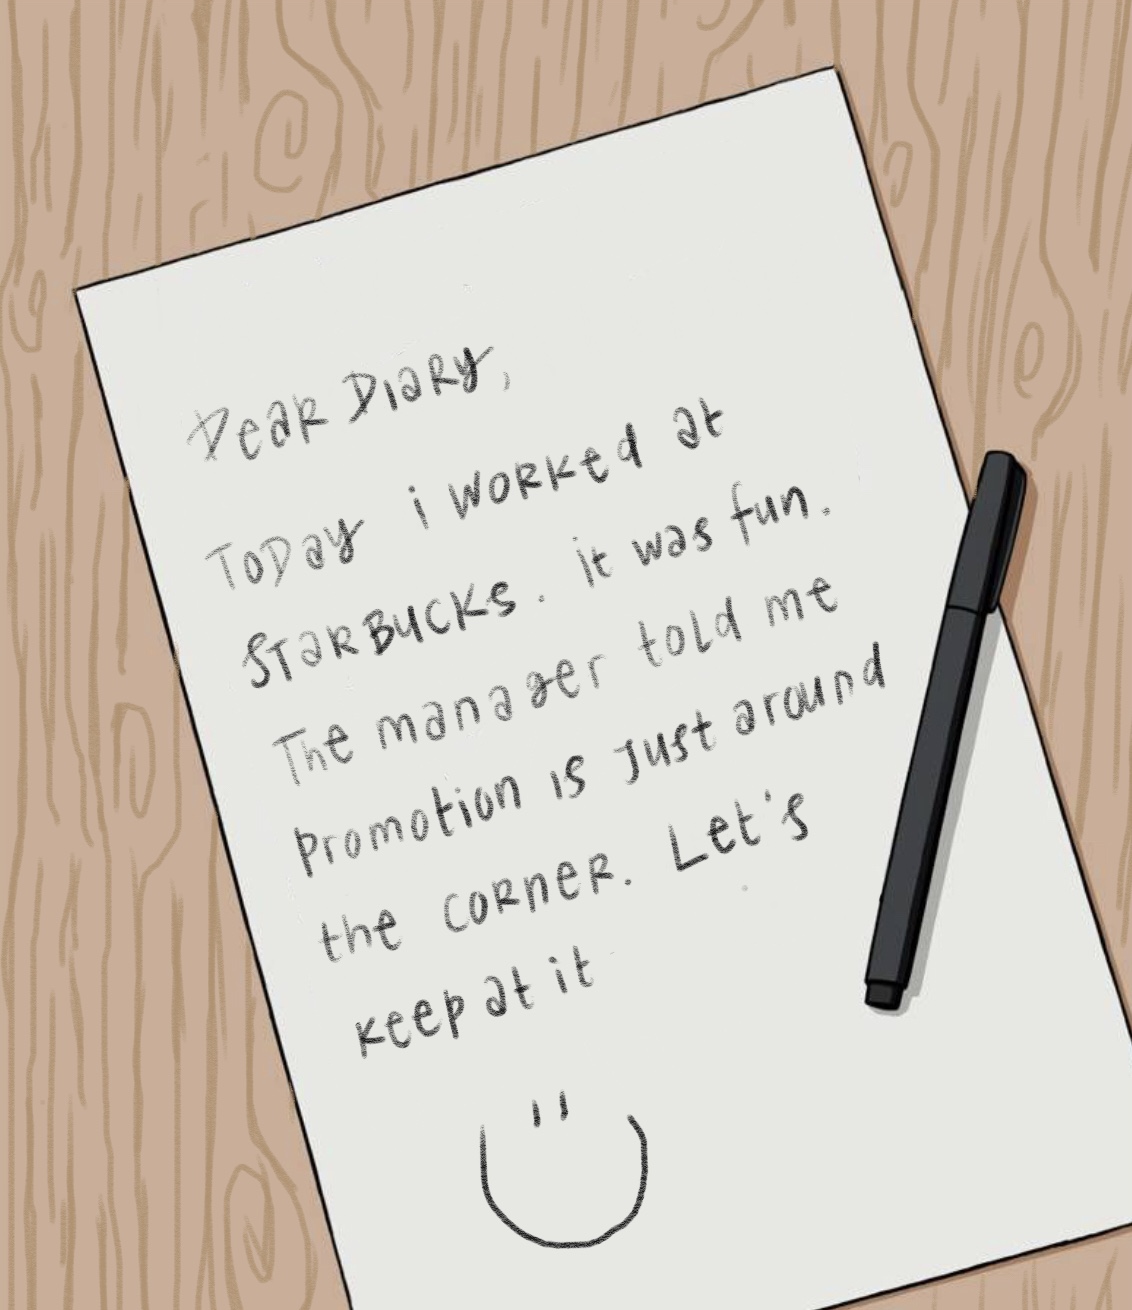 Dear Diary,
Today i worked at
Starbucks. it was fun.
The manager told me
promotion is just around
the corner. Let's
keep at it